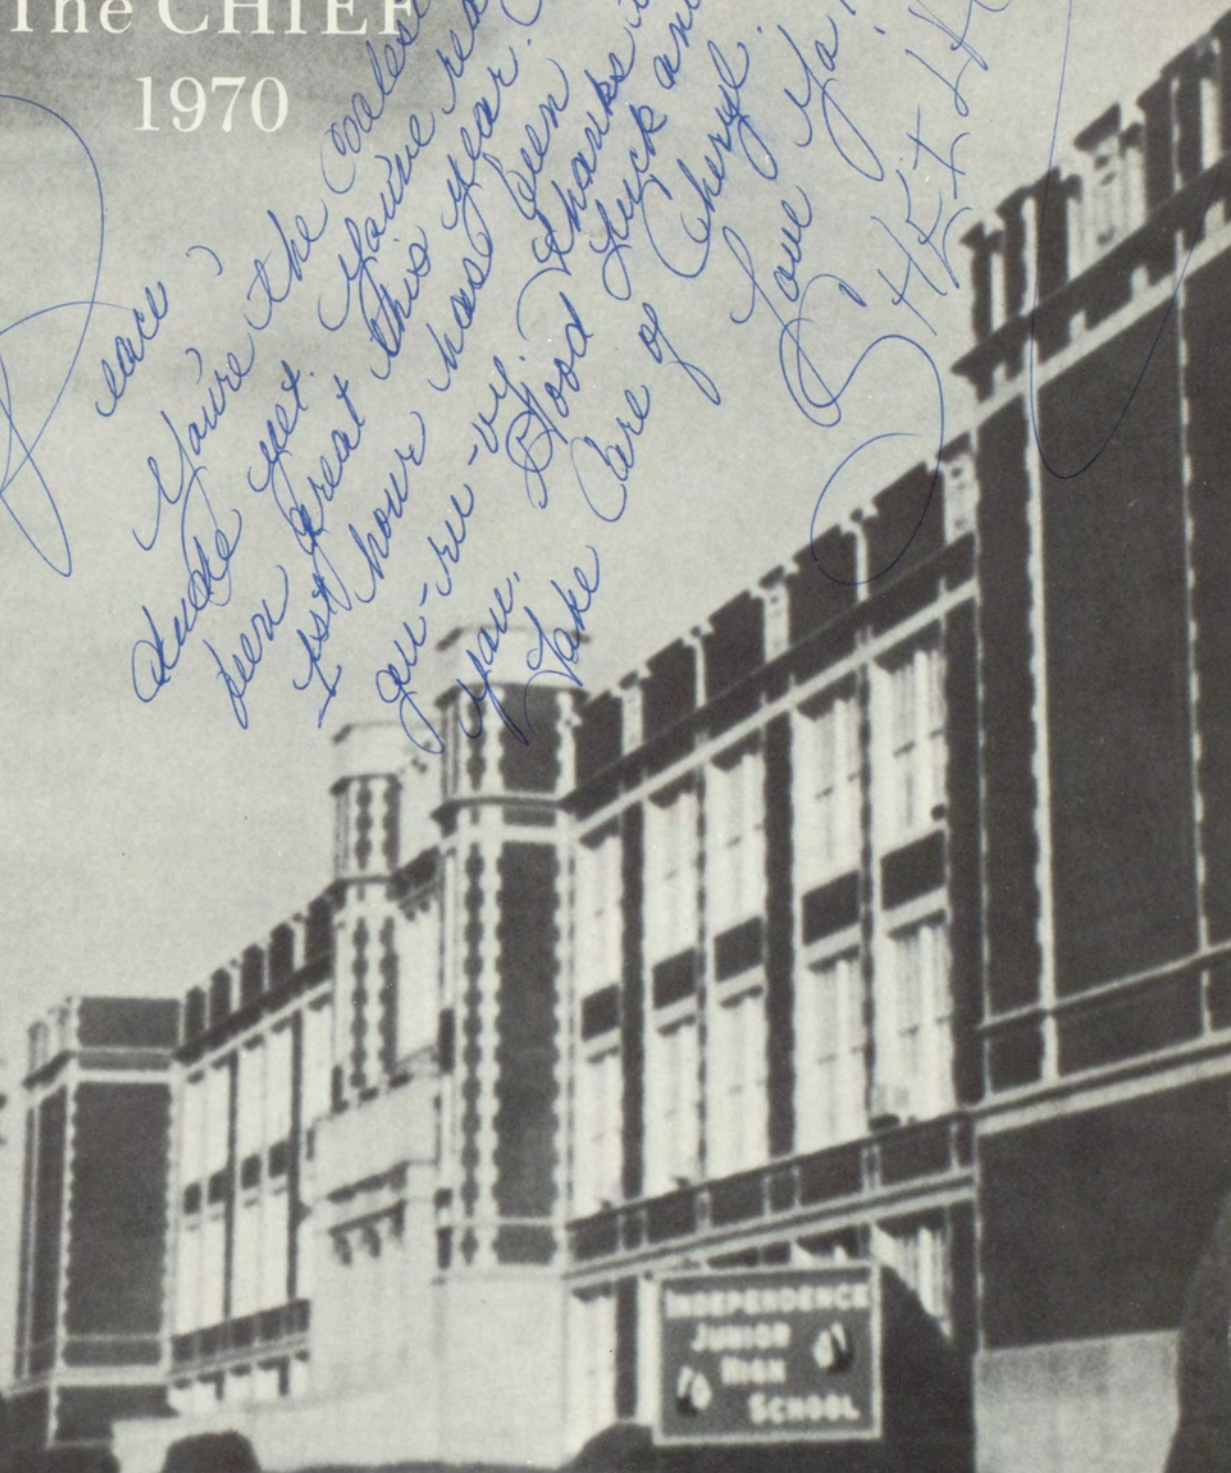 The CHIEF
1970
Peace
You're the coolest
dude yet. You've rea
been great this year.
1st hour has been
gru-ru-vy. Thanks
you. Good Luck and
Take Care of Cheryl.
Love Ya!
INDEPENDENCE
JUNIOR
HIGH
SCHOOL